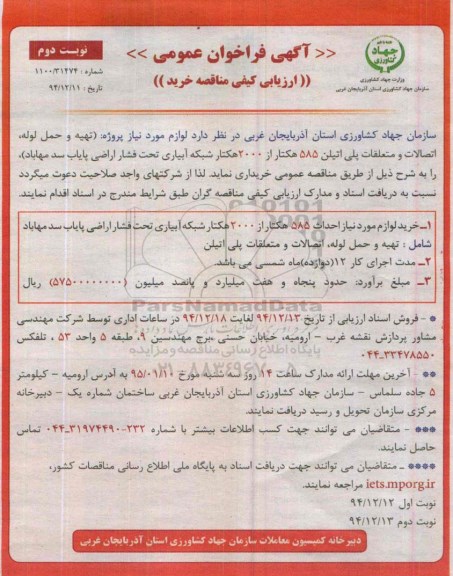 نوبت دوم
شماره : ۱۱۰۰/۳۱۴۷۴
تاریخ : ۹۴/۱۲/۱۱
<< آگهی فراخوان عمومی >>
(( ارزیابی کیفی مناقصه خرید ))
جهاد کشاورزی
وزارت جهاد کشاورزی
سازمان جهاد کشاورزی استان آذربایجان غربی
سازمان جهاد کشاورزی استان آذربایجان غربی در نظر دارد لوازم مورد نیاز پروژه: (تهیه و حمل لوله،
اتصالات و متعلقات پلی اتیلن ۵۸۵ هکتار از ۲۰۰۰هکتار شبکه آبیاری تحت فشار اراضی پایاب سد مهاباد)،
را به شرح ذیل از طریق مناقصه عمومی خریداری نماید. لذا از شرکتهای واجد صلاحیت دعوت میگردد
نسبت به دریافت اسناد و مدارک ارزیابی کیفی مناقصه گران طبق شرایط مندرج در اسناد اقدام نمایند.
۱ـ خرید لوازم مورد نیاز احداث ۵۸۵ هکتار از ۲۰۰۰ هکتار شبکه آبیاری تحت فشار اراضی پایاب سد مهاباد
شامل : تهیه و حمل لوله، اتصالات و متعلقات پلی اتیلن
۲ـ مدت اجرای کار ۱۲(دوازده)ماه شمسی می باشد.
۳ـ مبلغ برآورد: حدود پنجاه و هفت میلیارد و پانصد میلیون (۵۷۵۰۰۰۰۰۰۰۰) ریال
* - فروش اسناد ارزیابی از تاریخ ۹۴/۱۲/۱۳ لغایت ۹۴/۱۲/۱۸ در ساعات اداری توسط شرکت مهندسی
مشاور پردازش نقشه غرب - ارومیه، خیابان حسنی ،برج مهندسین ۹، طبقه ۵ واحد ۵۳ ، تلفکس
۰۴۴-۳۳۴۷۸۵۵۰
** - آخرین مهلت ارائه مدارک ساعت ۱۴ روز سه شنبه مورخ ۹۵/۰۱/۱۰ به آدرس ارومیه - کیلومتر
۵ جاده سلماس - سازمان جهاد کشاورزی استان آذربایجان غربی ساختمان شماره یک - دبیرخانه
مرکزی سازمان تحویل و رسید دریافت نمایند.
*** - متقاضیان می توانند جهت کسب اطلاعات بیشتر با شماره ۲۳۲-۳۱۹۷۴۴۹۰-۰۴۴ تماس
حاصل نمایند.
**** ـ متقاضیان می توانند جهت دریافت اسناد به پایگاه ملی اطلاع رسانی مناقصات کشور،
iets.mporg.ir مراجعه نمایند.
نوبت اول ۹۴/۱۲/۱۲
نوبت دوم ۹۴/۱۲/۱۳
دبیرخانه کمیسیون معاملات سازمان جهاد کشاورزی استان آذربایجان غربی
ParsNamadData
پایگاه اطلاع رسانی مناقصه و مزایده